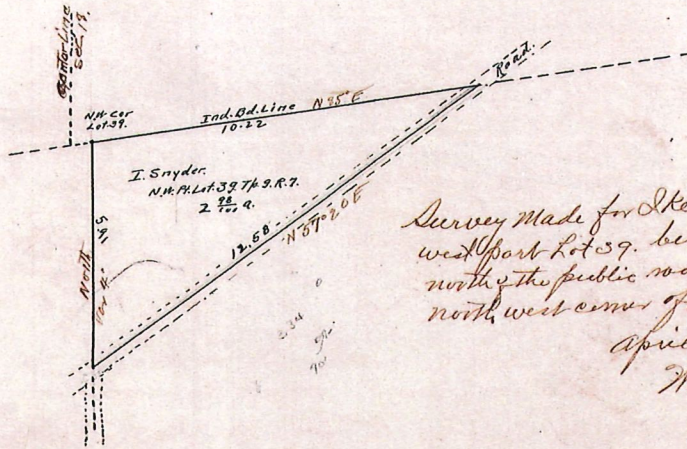 Center Line
Sec 18.
Road.
N.W. Cor
Lot 39.
Ind. Bd. Line N 85° E
10.22
I. Snyder.
N.W. Pt. Lot. 39. Tp. 9. R. 7.
2 98/100 a.
5.91
North
12.58
N 57° 20 E
Survey Made for Ike
west part Lot 39. be
north of the public roa
north west corner of
April